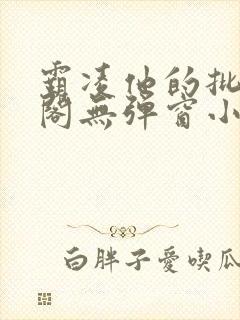 霸凌他的批
閣無彈窗小
白胖子愛喫瓜